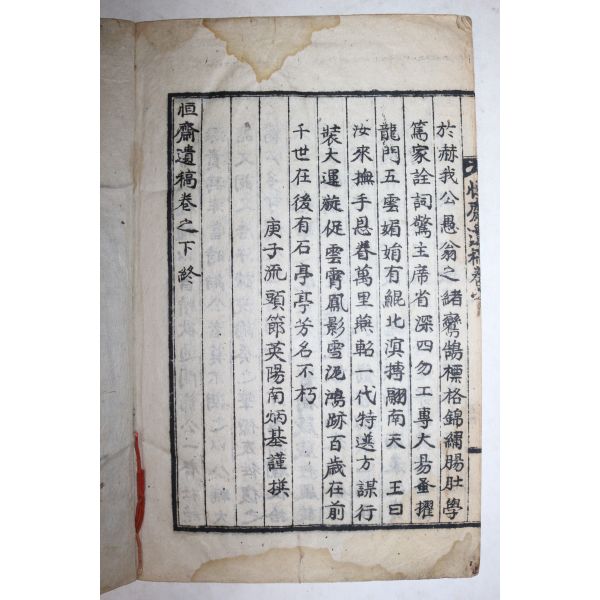 於赫我公愚翁之緖鸞鵠標格錦繡腸肚學
篤家詮詞驚主席省深四勿工專大易蚤擢
龍門五雲媚娟有鯤北溟搏翮南天 王曰
汝來撫手恩眷萬里燕軺一代特選方謀行
裝大運旋促雲霄鳳影雪泥鴻跡百歲在前
千世在後有石亭亭芳名不朽
庚子流頭節英陽南炳基謹撰
恒齋遺稿卷之下終